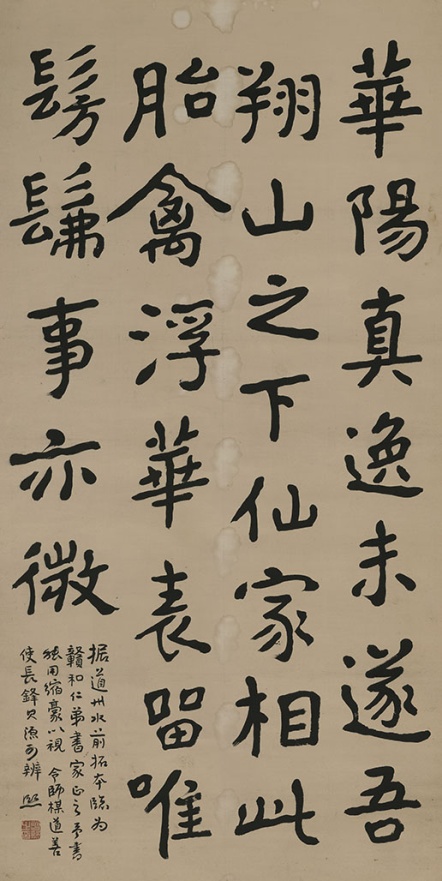 華陽真逸未遂吾
翔山之下仙家相此
胎禽浮華表留唯
髣髴事亦微
据道州水前拓本臨為
贛和仁弟書家正之予書
能用縮豪以視 令師楳道善
使長鋒源可辨 熙